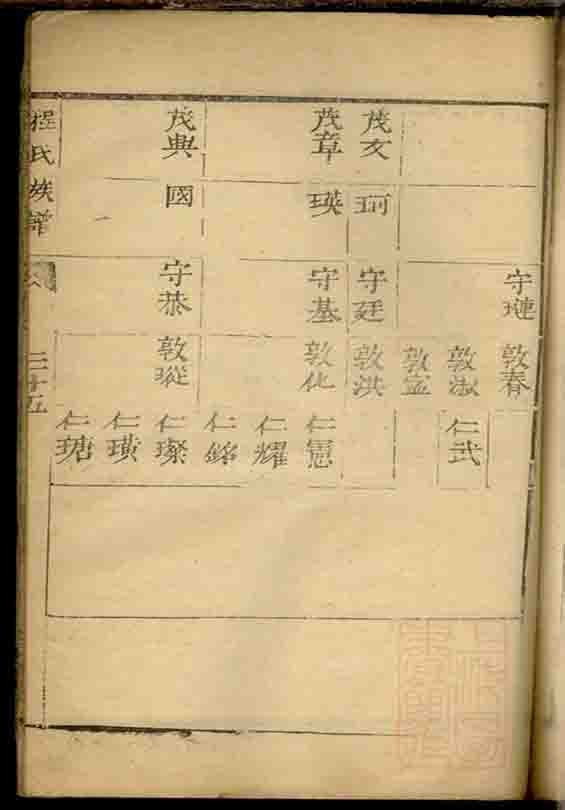 守璉
敦春
敦淑
仁武
敦寍
茂文
珂
守廷
敦洪
茂章
瑛
守基
敦化
仁憲
仁耀
仁銘
茂典
國
守恭
敦瑽
仁璨
仁璜
仁瑭
程氏族譜
二十五